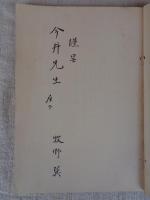 謹呈
今井先生
牧野英